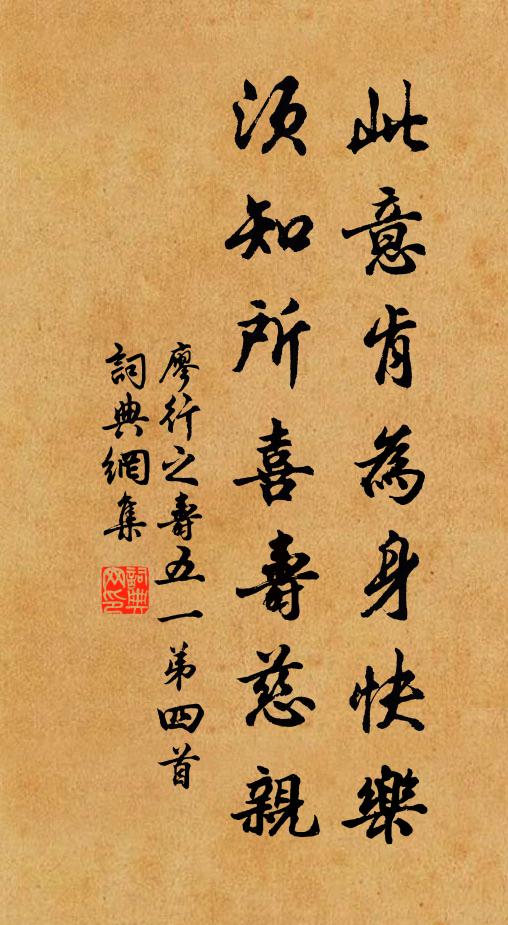 此意肯為身快樂
須知所喜壽慈親
廖行之壽五一第四首
詞典網集
詞典網印